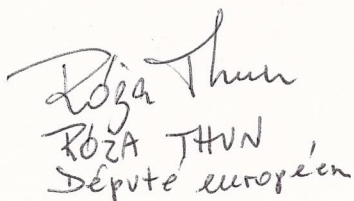 Róża Thun
RÓŻA THUN
Député européen